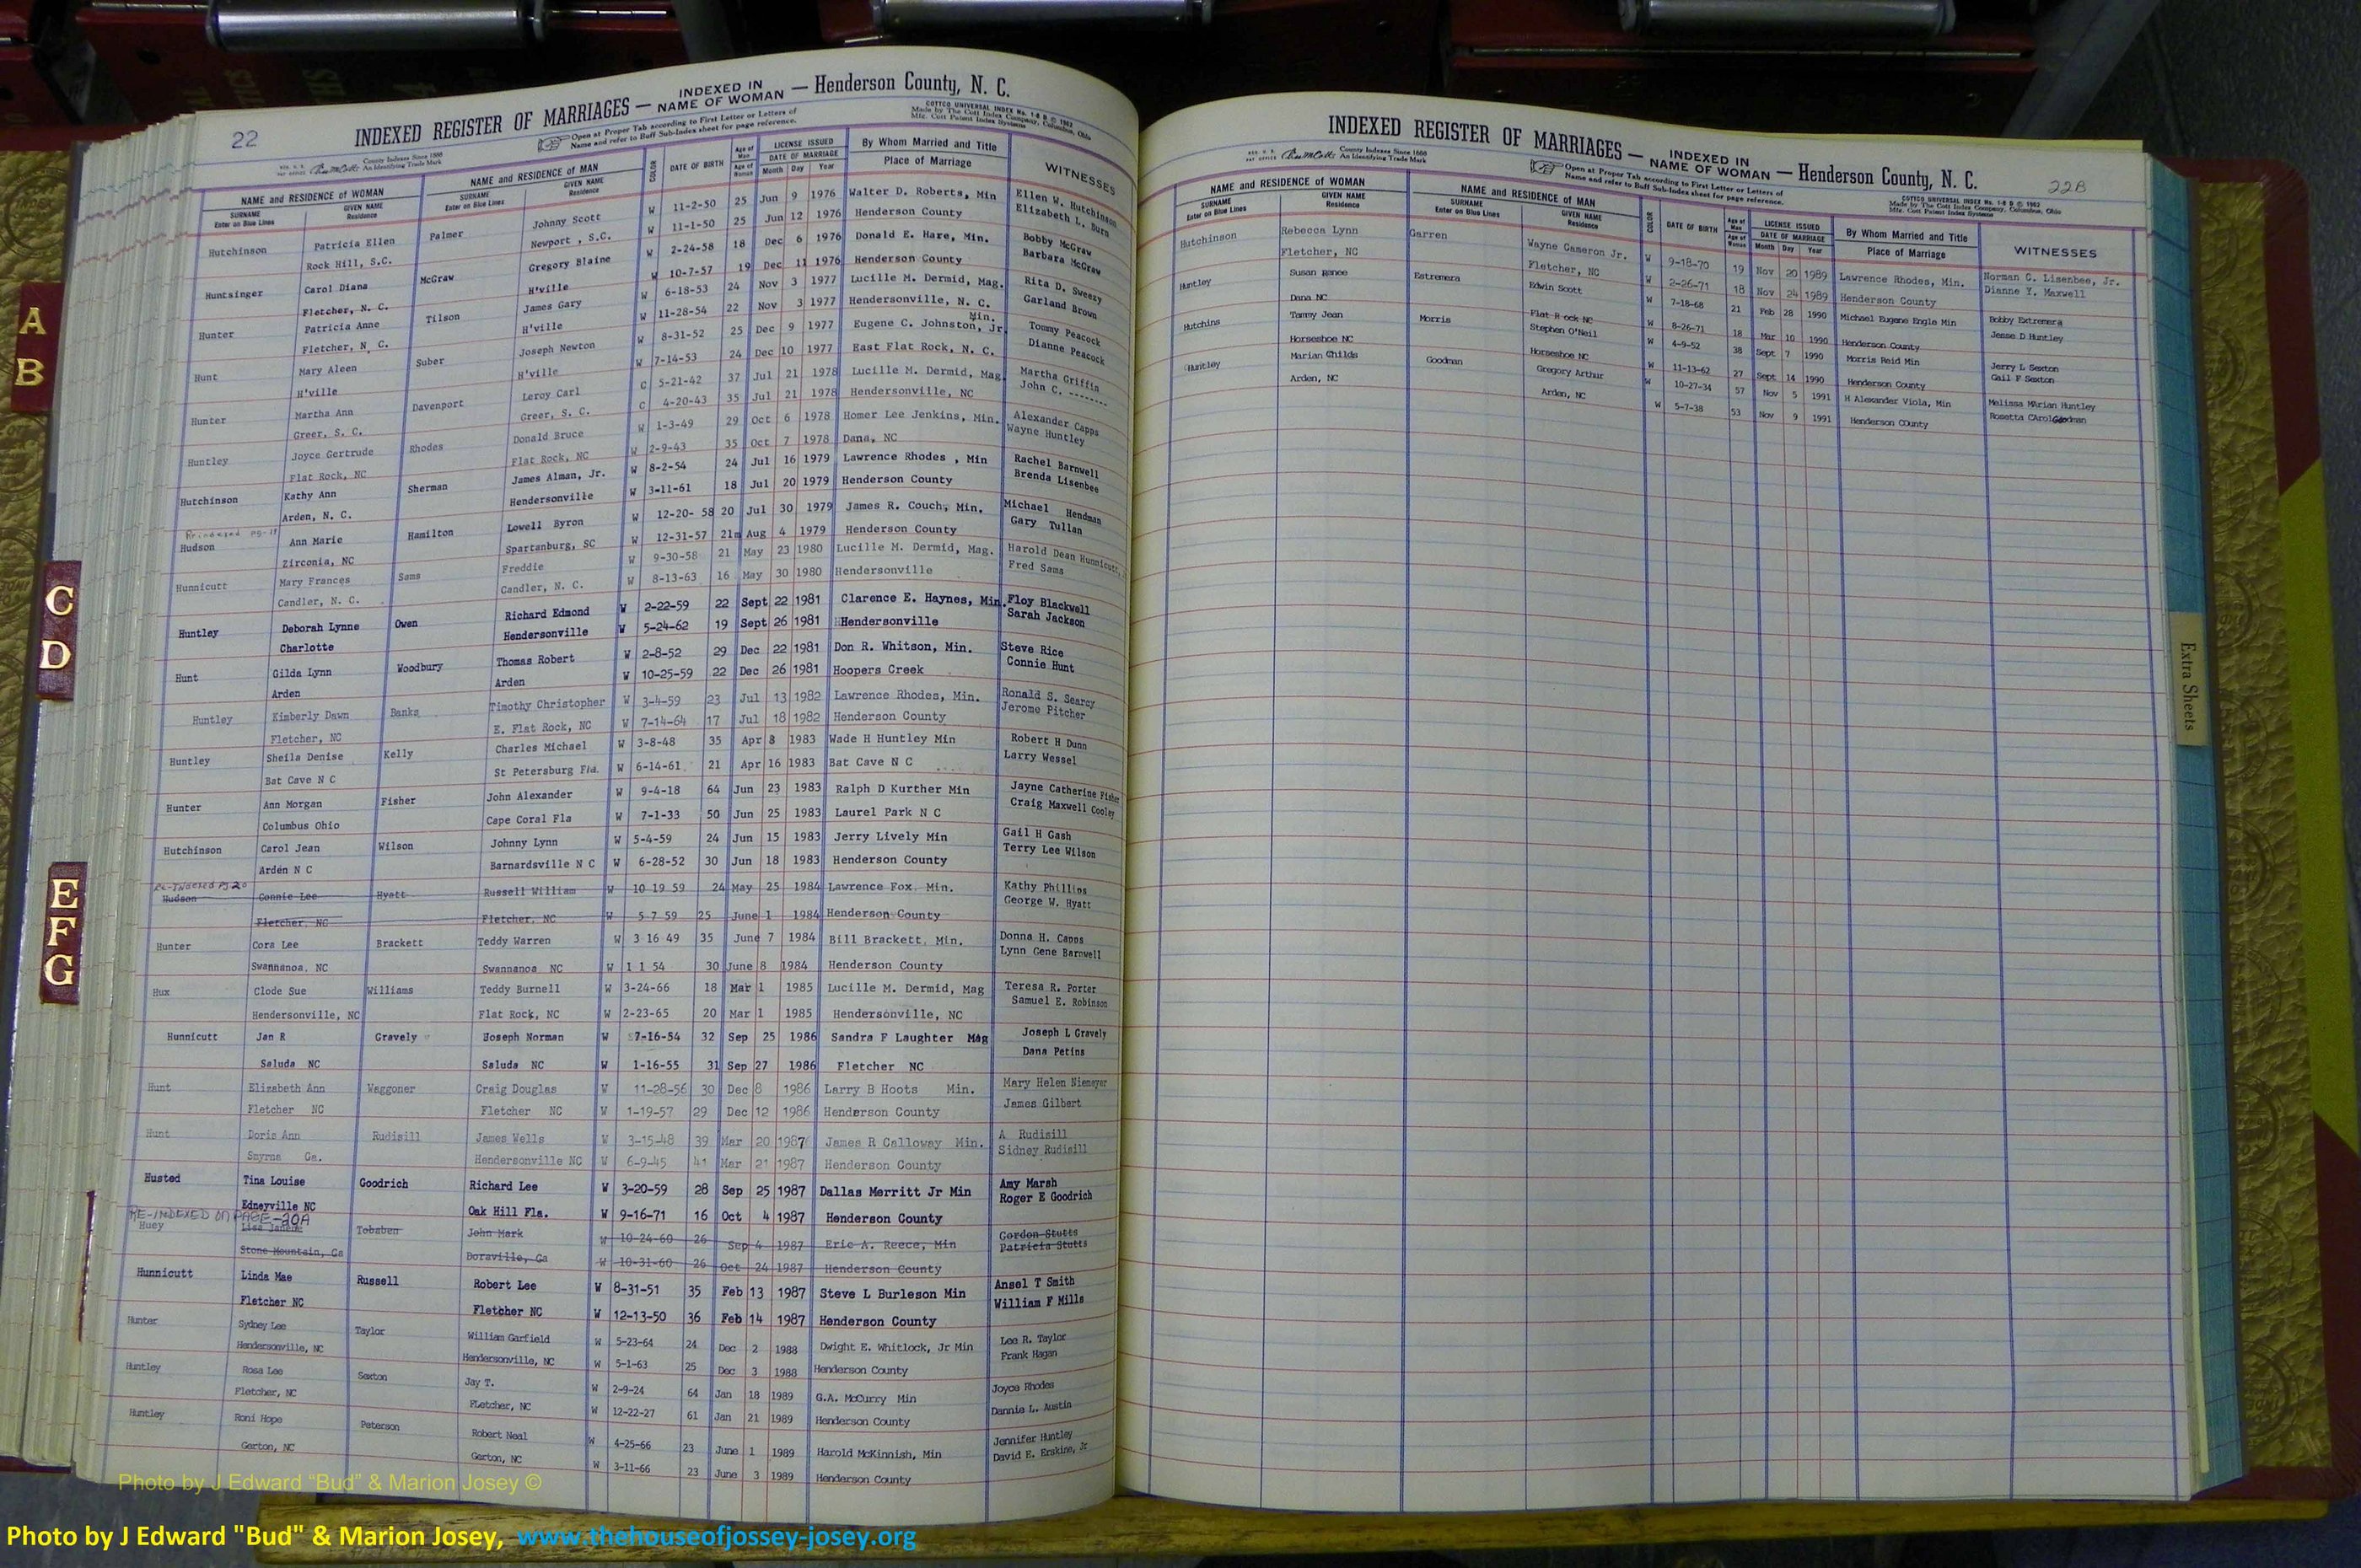 22
INDEXED REGISTER OF MARRIAGES — INDEXED IN NAME OF WOMAN — Henderson County, N. C.
Open at Proper Tab according to First Letter or Letters of
Name and refer to Buff Sub-Index sheet for page reference.
COTTCO UNIVERSAL INDEX No. 1-8 B © 1962
Made by The Cott Index Company, Columbus, Ohio
Mfg. Cott Patent Index Systems
County Indexes Since 1888
An Identifying Trade Mark
NAME and RESIDENCE OF WOMAN NAME and RESIDENCE OF MAN COLOR DATE OF BIRTH Age of Man Age of Woman LICENSE ISSUED DATE OF MARRIAGE By Whom Married and Title Place of Marriage WITNESSES
SURNAME Enter on Blue Lines GIVEN NAME Residence SURNAME Enter on Blue Lines GIVEN NAME Residence Month Day Year
Hutchinson Patricia Ellen Palmer Johnny Scott W 11-2-50 25 Jun 9 1976 Walter D. Roberts, Min Ellen W. Hutchinson
Rock Hill, S.C. Newport , S.C. W 11-1-50 25 Jun 12 1976 Henderson County Elizabeth L. Burn
Huntsinger Carol Diana McGraw Gregory Blaine W 2-24-58 18 Dec 6 1976 Donald E. Hare, Min. Bobby McGraw
Fletcher, N. C. H'ville W 10-7-57 19 Dec 11 1976 Henderson County Barbara McGraw
Hunter Patricia Anne Tilson James Gary W 6-18-53 24 Nov 3 1977 Lucille M. Dermid, Mag. Rita D. Sweezy
Fletcher, N. C. H'ville W 11-28-54 22 Nov 3 1977 Hendersonville, N. C. Garland Brown
Hunt Mary Aleen Suber Joseph Newton W 8-31-52 25 Dec 9 1977 Eugene C. Johnston, Jr. Min. Tommy Peacock
H'ville H'ville W 7-14-53 24 Dec 10 1977 East Flat Rock, N. C. Dianne Peacock
Hunter Martha Ann Davenport Leroy Carl C 5-21-42 37 Jul 21 1978 Lucille M. Dermid, Mag. Martha Griffin
Greer, S. C. Greer, S. C. C 4-20-43 35 Jul 21 1978 Hendersonville, NC John C. --------
Huntley Joyce Gertrude Rhodes Donald Bruce W 1-3-49 29 Oct 6 1978 Homer Lee Jenkins, Min. Alexander Capps
Flat Rock, NC Flat Rock, NC W 2-9-43 35 Oct 7 1978 Dana, NC Wayne Huntley
Hutchinson Kathy Ann Sherman James Alman, Jr. W 8-2-54 24 Jul 16 1979 Lawrence Rhodes , Min Rachel Barnwell
Arden, N. C. Hendersonville W 3-11-61 18 Jul 20 1979 Henderson County Brenda Lisenbee
Reindexed pg-18
Hudson Ann Marie Hamilton Lowell Byron W 12-20- 58 20 Jul 30 1979 James R. Couch, Min. Michael Hendman
Zirconia, NC Spartanburg, SC W 12-31-57 21m Aug 4 1979 Henderson County Gary Tullan
Hunnicutt Mary Frances Sams Freddie W 9-30-58 21 May 23 1980 Lucille M. Dermid, Mag. Harold Dean Hunnicutt,
Candler, N. C. Candler, N. C. W 8-13-63 16 May 30 1980 Hendersonville Fred Sams
Huntley Deborah Lynne Owen Richard Edmond W 2-22-59 22 Sept 22 1981 Clarence E. Haynes, Min. Floy Blackwell
Charlotte Hendersonville W 5-24-62 19 Sept 26 1981 Hendersonville Sarah Jackson
Hunt Gilda Lynn Woodbury Thomas Robert W 2-8-52 29 Dec 22 1981 Don R. Whitson, Min. Steve Rice
Arden Arden W 10-25-59 22 Dec 26 1981 Hoopers Creek Connie Hunt
Huntley Kimberly Dawn Banks Timothy Christopher W 3-4-59 23 Jul 13 1982 Lawrence Rhodes, Min. Ronald S. Searcy
Fletcher, NC E. Flat Rock, NC W 7-14-64 17 Jul 18 1982 Henderson County Jerome Pitcher
Huntley Sheila Denise Kelly Charles Michael W 3-8-48 35 Apr 8 1983 Wade H Huntley Min Robert H Dunn
Bat Cave N C St Petersburg Fla. W 6-14-61 21 Apr 16 1983 Bat Cave N C Larry Wessel
Hunter Ann Morgan Fisher John Alexander W 9-4-18 64 Jun 23 1983 Ralph D Kurther Min Jayne Catherine Fisher
Columbus Ohio Cape Coral Fla W 7-1-33 50 Jun 25 1983 Laurel Park N C Craig Maxwell Cooley
Hutchinson Carol Jean Wilson Johnny Lynn W 5-4-59 24 Jun 15 1983 Jerry Lively Min Gail H Gash
Arden N C Barnardsville N C W 6-28-52 30 Jun 18 1983 Henderson County Terry Lee Wilson
Re-Indexed pg 20
Hudson Connie Lee Hyatt Russell William W 10 19 59 24 May 25 1984 Lawrence Fox. Min. Kathy Phillips
Fletcher, NC Fletcher, NC W 5 7 59 25 June 1 1984 Henderson County George W. Hyatt
Hunter Cora Lee Brackett Teddy Warren W 3 16 49 35 June 7 1984 Bill Brackett, Min. Donna H. Capps
Swannanoa, NC Swannanoa NC W 1 1 54 30 June 8 1984 Henderson County Lynn Gene Barnwell
Hux Clode Sue Williams Teddy Burnell W 3-24-66 18 Mar 1 1985 Lucille M. Dermid, Mag Teresa R. Porter
Hendersonville, NC Flat Rock, NC W 2-23-65 20 Mar 1 1985 Hendersonville, NC Samuel E. Robinson
Hunnicutt Jan R Gravely Joseph Norman W 7-16-54 32 Sep 25 1986 Sandra F Laughter Mag Joseph L Gravely
Saluda NC Saluda NC W 1-16-55 31 Sep 27 1986 Fletcher NC Dana Petins
Hunt Elizabeth Ann Waggoner Craig Douglas W 11-28-56 30 Dec 8 1986 Larry B Hoots Min. Mary Helen Niemeyer
Fletcher NC Fletcher NC W 1-19-57 29 Dec 12 1986 Henderson County James Gilbert
Hunt Doris Ann Rudisill James Wells W 3-15-48 39 Mar 20 1987 James R Calloway Min. A Rudisill
Smyrna Ga. Hendersonville NC W 6-9-45 41 Mar 21 1987 Henderson County Sidney Rudisill
Husted Tina Louise Goodrich Richard Lee W 3-20-59 28 Sep 25 1987 Dallas Merritt Jr Min Amy Marsh
Edneyville NC Oak Hill Fla. W 9-16-71 16 Oct 4 1987 Henderson County Roger E Goodrich
RE-INDEXED ON PAGE-20A
Huey Lisa Janene Tobaben John Mark W 10-24-60 26 Sep 4 1987 Eric A. Reece, Min Gordon Stutts
Stone Mountain, Ga Doraville, Ga W 10-31-60 26 Oct 24 1987 Henderson County Patricia Stutts
Hunnicutt Linda Mae Russell Robert Lee W 8-31-51 35 Feb 13 1987 Steve L Burleson Min Ansel T Smith
Fletcher NC Fletcher NC W 12-13-50 36 Feb 14 1987 Henderson County William F Mills
Hunter Sydney Lee Taylor William Garfield W 5-23-64 24 Dec 2 1988 Dwight E. Whitlock, Jr Min Lee R. Taylor
Hendersonville, NC Hendersonville, NC W 5-1-63 25 Dec 3 1988 Henderson County Frank Hagan
Huntley Rosa Lee Sexton Jay T. W 2-9-24 64 Jan 18 1989 G.A. McCurry Min Joyce Rhodes
Fletcher, NC Fletcher, NC W 12-22-27 61 Jan 21 1989 Henderson County Dannie L. Austin
Huntley Roni Hope Peterson Robert Neal W 4-25-66 23 June 1 1989 Harold McKinnish, Min Jennifer Huntley
Gerton, NC Gerton, NC W 3-11-66 23 June 3 1989 Henderson County David E. Erskine, Jr
INDEXED REGISTER OF MARRIAGES — INDEXED IN NAME OF WOMAN — Henderson County, N. C.
22B
County Indexes Since 1888
An Identifying Trade Mark
Open at Proper Tab according to First Letter or Letters of
Name and refer to Buff Sub-Index sheet for page reference.
COTTCO UNIVERSAL INDEX No. 1-8 B © 1962
Made by The Cott Index Company, Columbus, Ohio
Mfg. Cott Patent Index Systems
NAME and RESIDENCE OF WOMAN NAME and RESIDENCE OF MAN COLOR DATE OF BIRTH Age of Man Age of Woman LICENSE ISSUED DATE OF MARRIAGE By Whom Married and Title Place of Marriage WITNESSES
SURNAME Enter on Blue Lines GIVEN NAME Residence SURNAME Enter on Blue Lines GIVEN NAME Residence Month Day Year
Hutchinson Rebecca Lynn Garren Wayne Cameron Jr. W 9-18-70 19 Nov 20 1989 Lawrence Rhodes, Min. Norman C. Lisenbee, Jr.
Fletcher, NC Fletcher, NC W 2-26-71 18 Nov 24 1989 Henderson County Dianne Y. Maxwell
Huntley Susan Renee Estremera Edwin Scott W 7-18-68 21 Feb 28 1990 Michael Eugene Engle Min Bobby Extremera
Dana NC Flat Rock NC W 8-26-71 18 Mar 10 1990 Henderson County Jesse D Huntley
Hutchins Tammy Jean Morris Stephen O'Neil W 4-9-52 38 Sept 7 1990 Morris Reid Min Jerry L Sexton
Horseshoe NC Horseshoe NC W 11-13-62 27 Sept 14 1990 Henderson County Gail F Sexton
Huntley Marian Childs Goodman Gregory Arthur W 10-27-34 57 Nov 5 1991 H Alexander Viola, Min Melissa MArian Huntley
Arden, NC Arden, NC W 5-7-38 53 Nov 9 1991 Henderson County Rosetta CArol Goodman
Extra Sheets
A
B
C
D
E
F
G
Photo by J Edward “Bud” & Marion Josey ©
Photo by J Edward "Bud" & Marion Josey, www.thehouseofjossey-josey.org